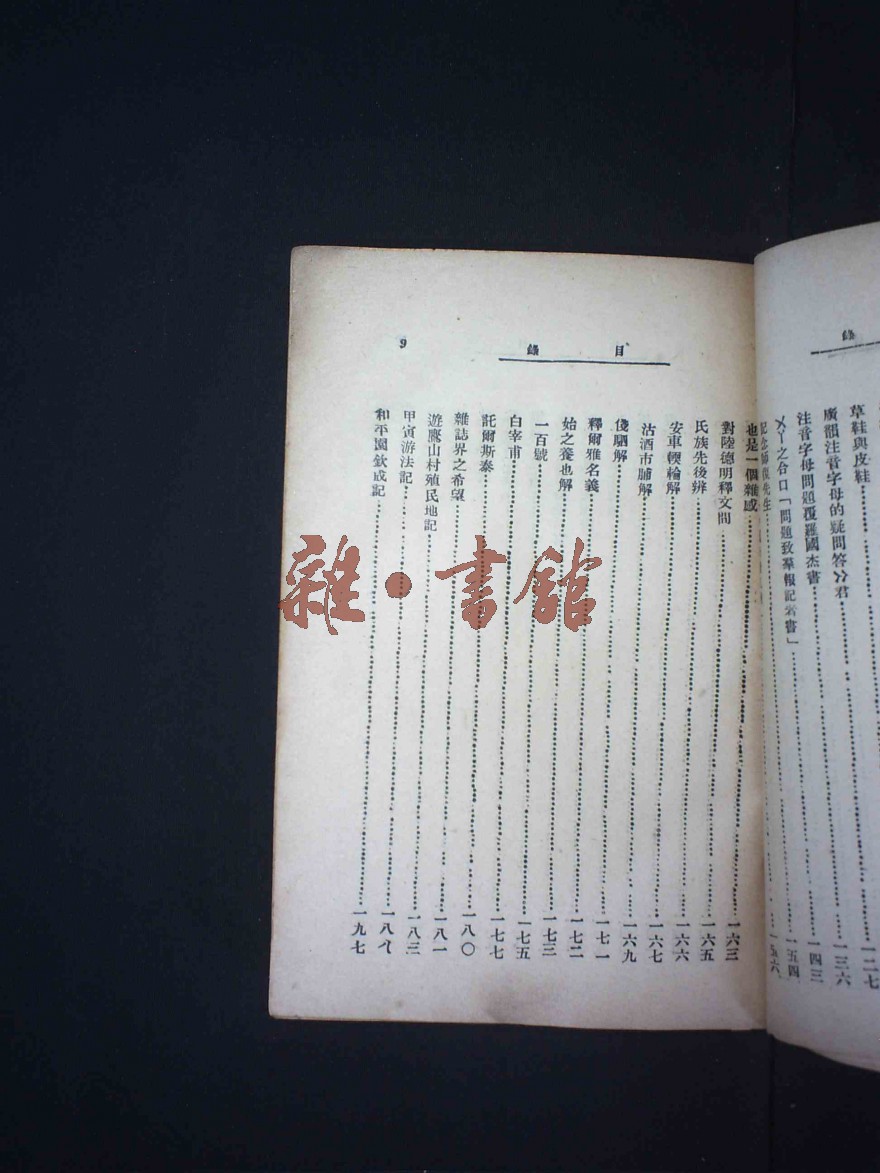 錄
草鞋與皮鞋……一二七
廣韻注音字母的疑問答公君……一三六
注音字母問題覆羅國杰書……一四三
ㄨㄚ之合口「問題致羣報記者書」……一五四
記念師復先生……一五六
目錄
9
也是一個雜感……一六三
對陸德明釋文問……一六五
民族先後辨……一六六
安車輭輪解……一六七
沽酒市脯解……一六九
俴駟解……一七一
釋爾雅名義……一七二
始之養也解……一七三
一百號……一七五
白宰甫……一七七
託爾斯泰……一八〇
雜誌界之希望……一八一
遊鷹山村殖民地記……一八三
甲寅游法記……一八八
和平園飲成記……一九七
雜·書館